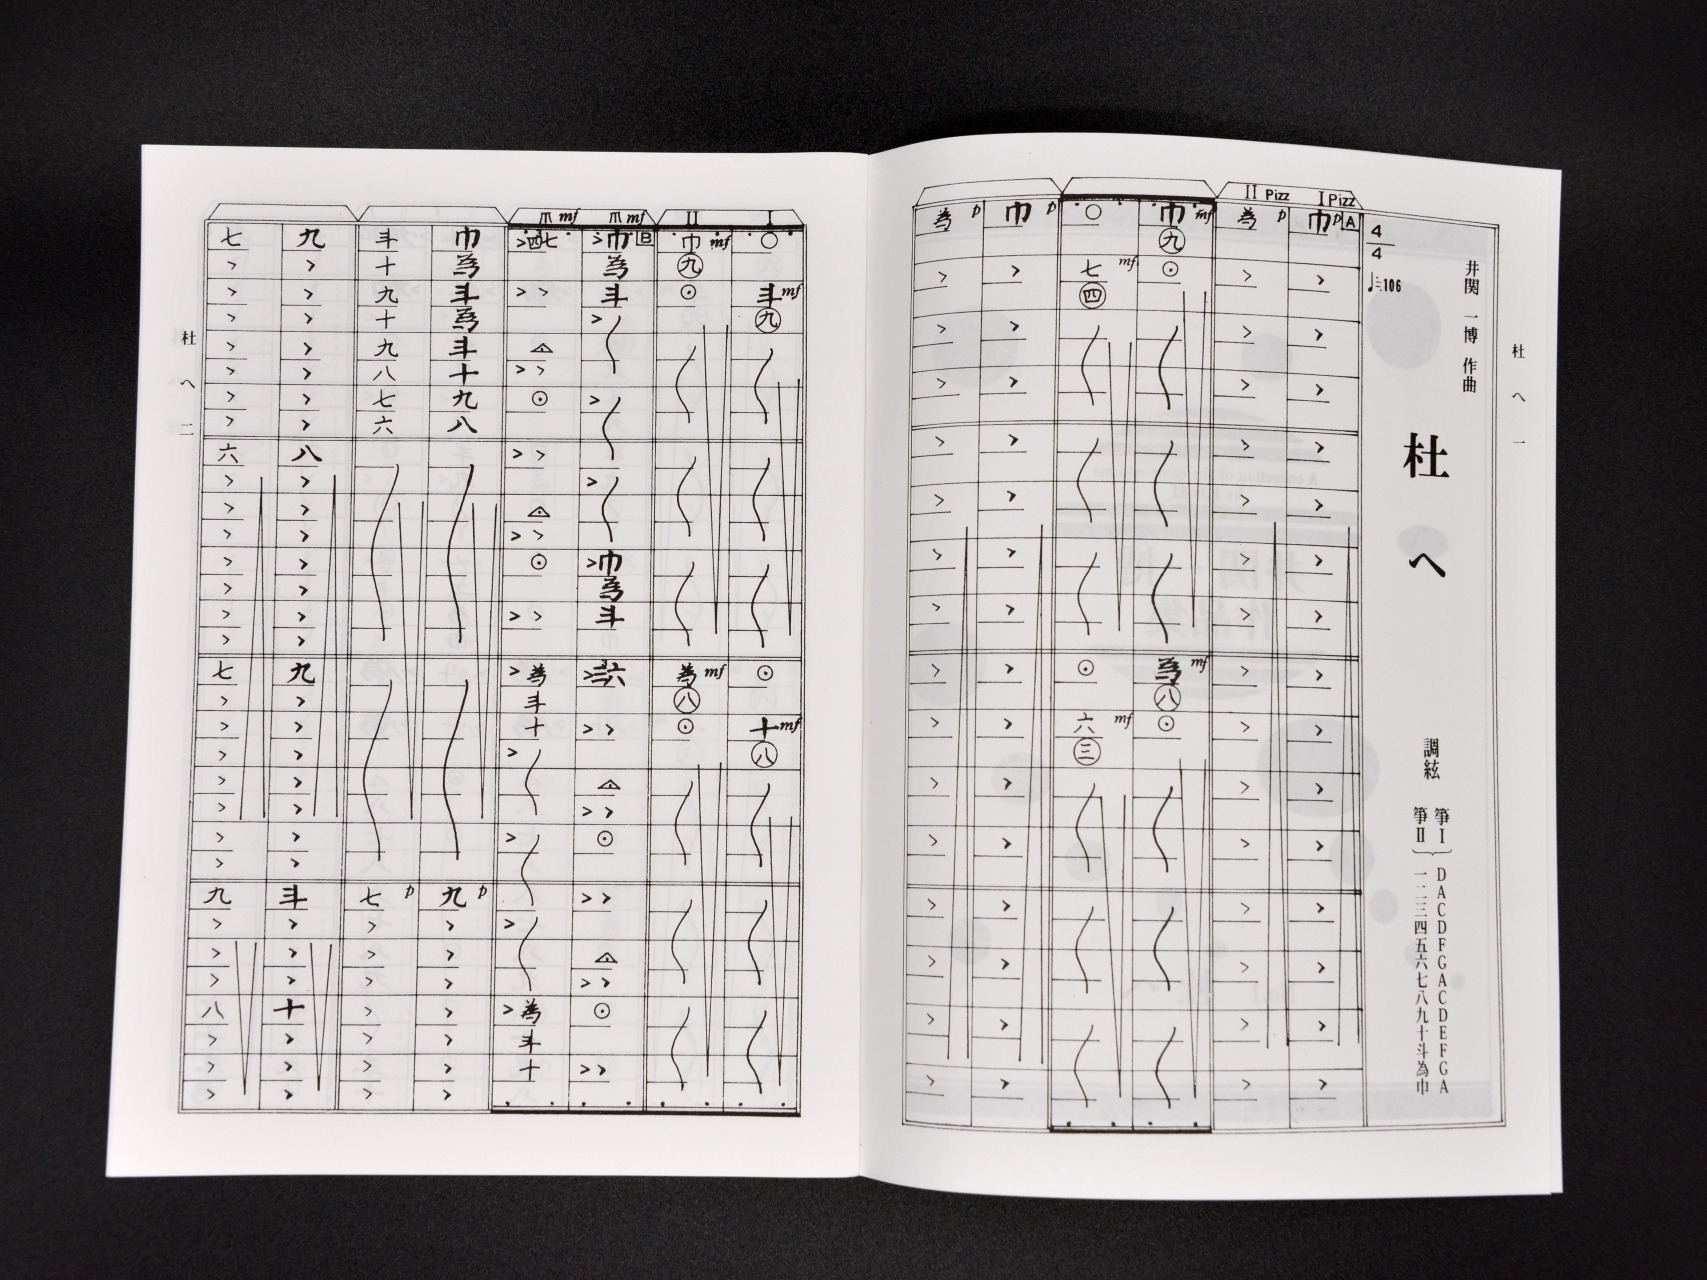 杜へ 一
井関 一博 作曲
杜へ
調絃
箏I DACDFGACDEFGA
箏II 一二三四五六七八九十斗為巾
4/4
♩≒106
I Pizz
A
巾 p
II Pizz
為 p
巾 mf
九
為 mf
八
七 mf
四
六 mf
三
巾 p
為 p
I
斗 mf
九
十 mf
八
II
巾 mf
九
為 mf
八
mf
B
巾
為
斗
巾
為
斗
六
mf
四七
為
斗
十
為
斗
十
巾
為
斗
為
斗
十
九
八
九 p
斗
十
九
十
九
八
七
六
七 p
九
八
九
斗
十
七
六
七
九
八
杜へ 二